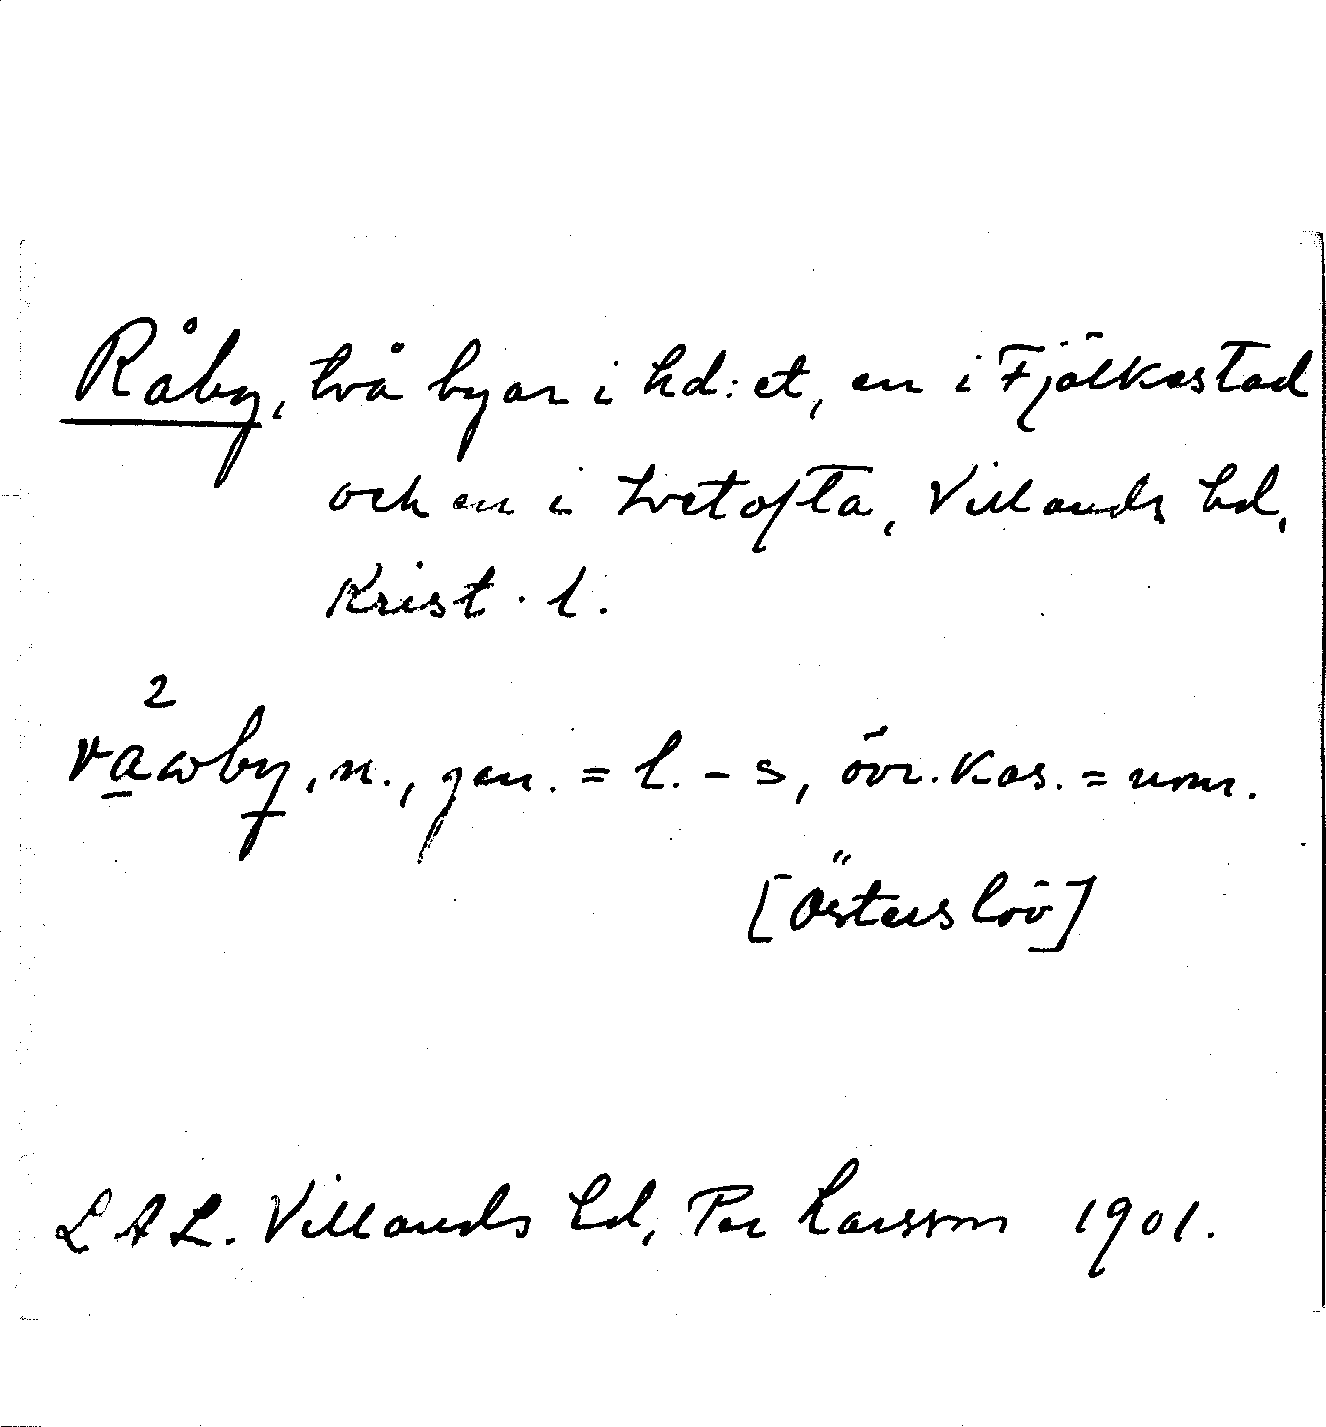 Råby, två byar i hd:et, en i Fjälkestad
och en i Ivetofta, Villands hd,
Krist. l.
2
vawby, n., gen. = l. - s, övr. kas. = nom.
[Österslöv]
LAL. Villands hd, Per Larsson 1901.